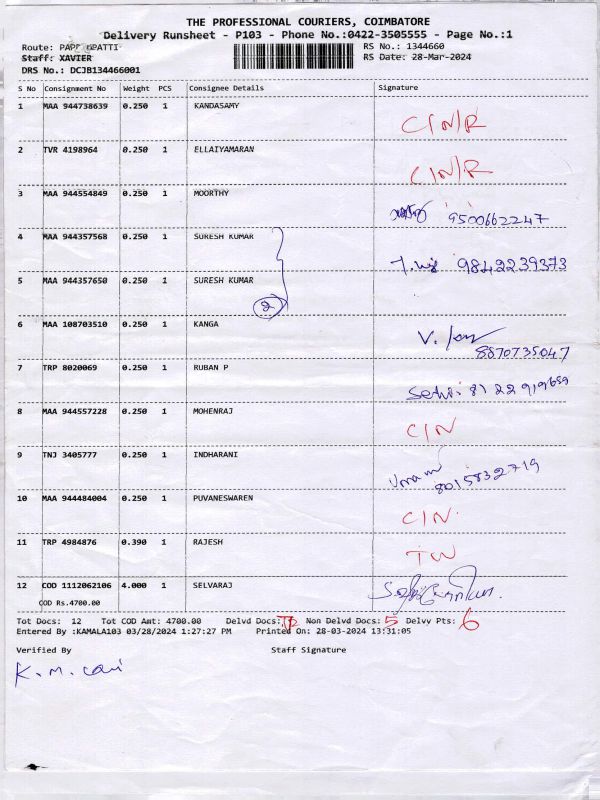 THE PROFESSIONAL COURIERS, COIMBATORE
Delivery Runsheet - P103 - Phone No.:0422-3505555 - Page No.:1
Route: RS No.: 1344660
Staff: XAVIER RS Date: 28-Mar-2024
DRS No.: DCJB134466001
S No Consignment No Weight PCS Consignee Details Signature
1 MAA 944738639 0.250 1 KANDASAMY C/N/R
2 TVR 4198964 0.250 1 ELLAIYAMARAN C/N/R
3 MAA 944554849 0.250 1 MOORTHY 9500662247
4 MAA 944357568 0.250 1 SURESH KUMAR 9842239373
5 MAA 944357650 0.250 1 SURESH KUMAR
2
6 MAA 108703510 0.250 1 KANGA V.
8870735047
7 TRP 8020069 0.250 1 RUBAN P
8 MAA 944557228 0.250 1 MOHENRAJ C/N
9 TNJ 3405777 0.250 1 INDHARANI
8015832719
10 MAA 944484004 0.250 1 PUVANESWAREN C/N
11 TRP 4984876 0.390 1 RAJESH
12 COD 1112062106 4.000 1 SELVARAJ
COD Rs.4700.00
Tot Docs: 12 Tot COD Amt: 4700.00 Delvd Docs: Non Delvd Docs: 5 Delvy Pts: 6
Entered By :KAMALA103 03/28/2024 1:27:27 PM Printed On: 28-03-2024 13:31:05
Verified By Staff Signature
K. M.